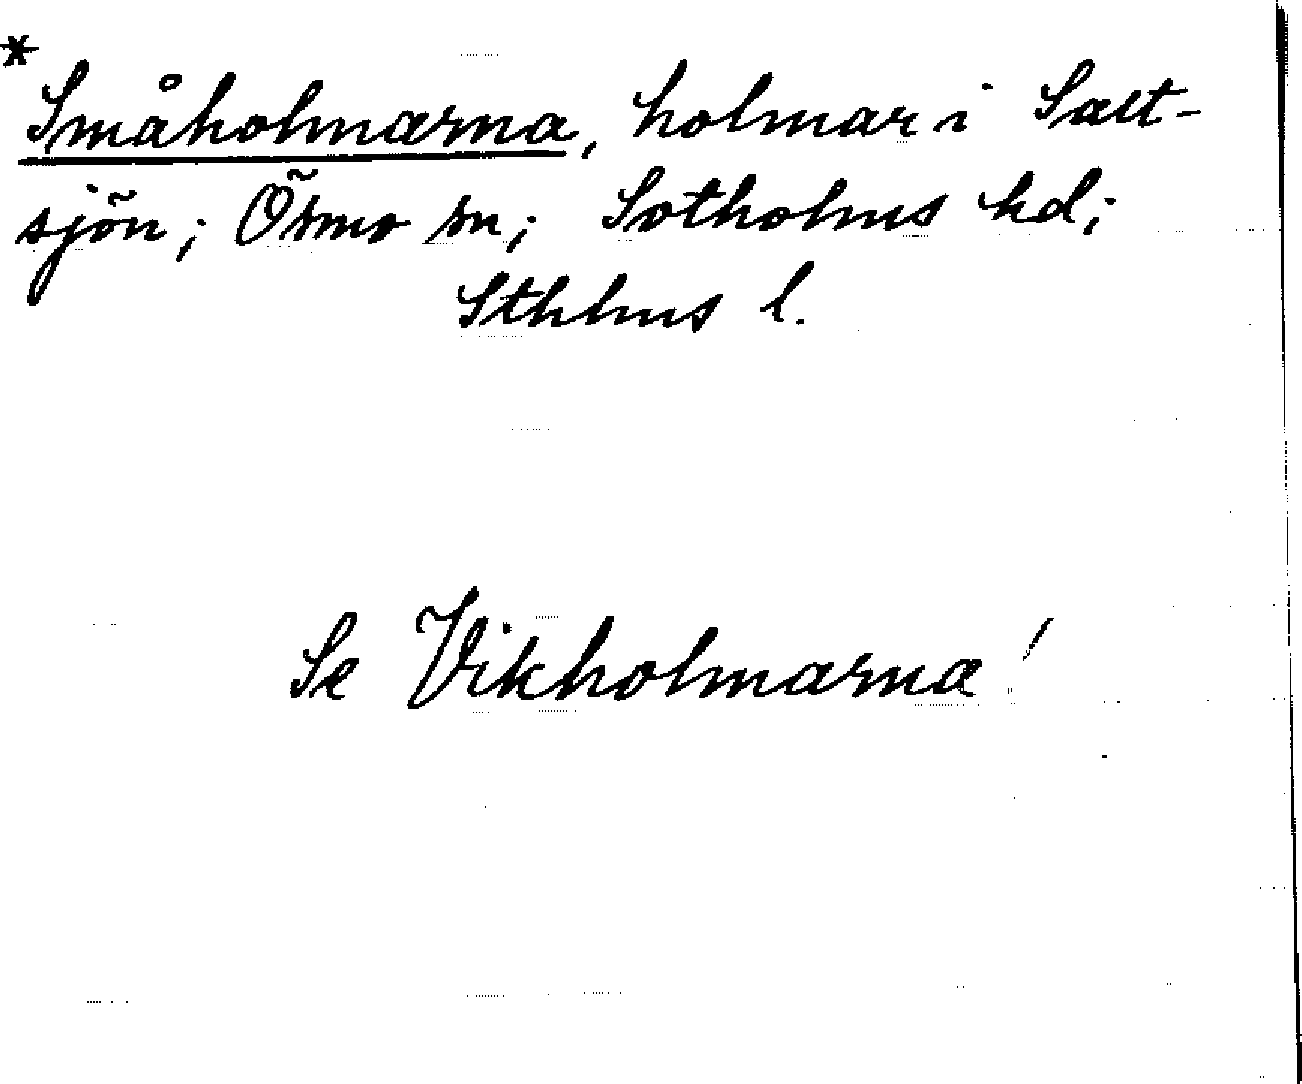 * Småholmarna, holmar i Salt-
sjön; Ösmo sn; Sotholms hd;
Sthlms l.
Se Vikholmarna!